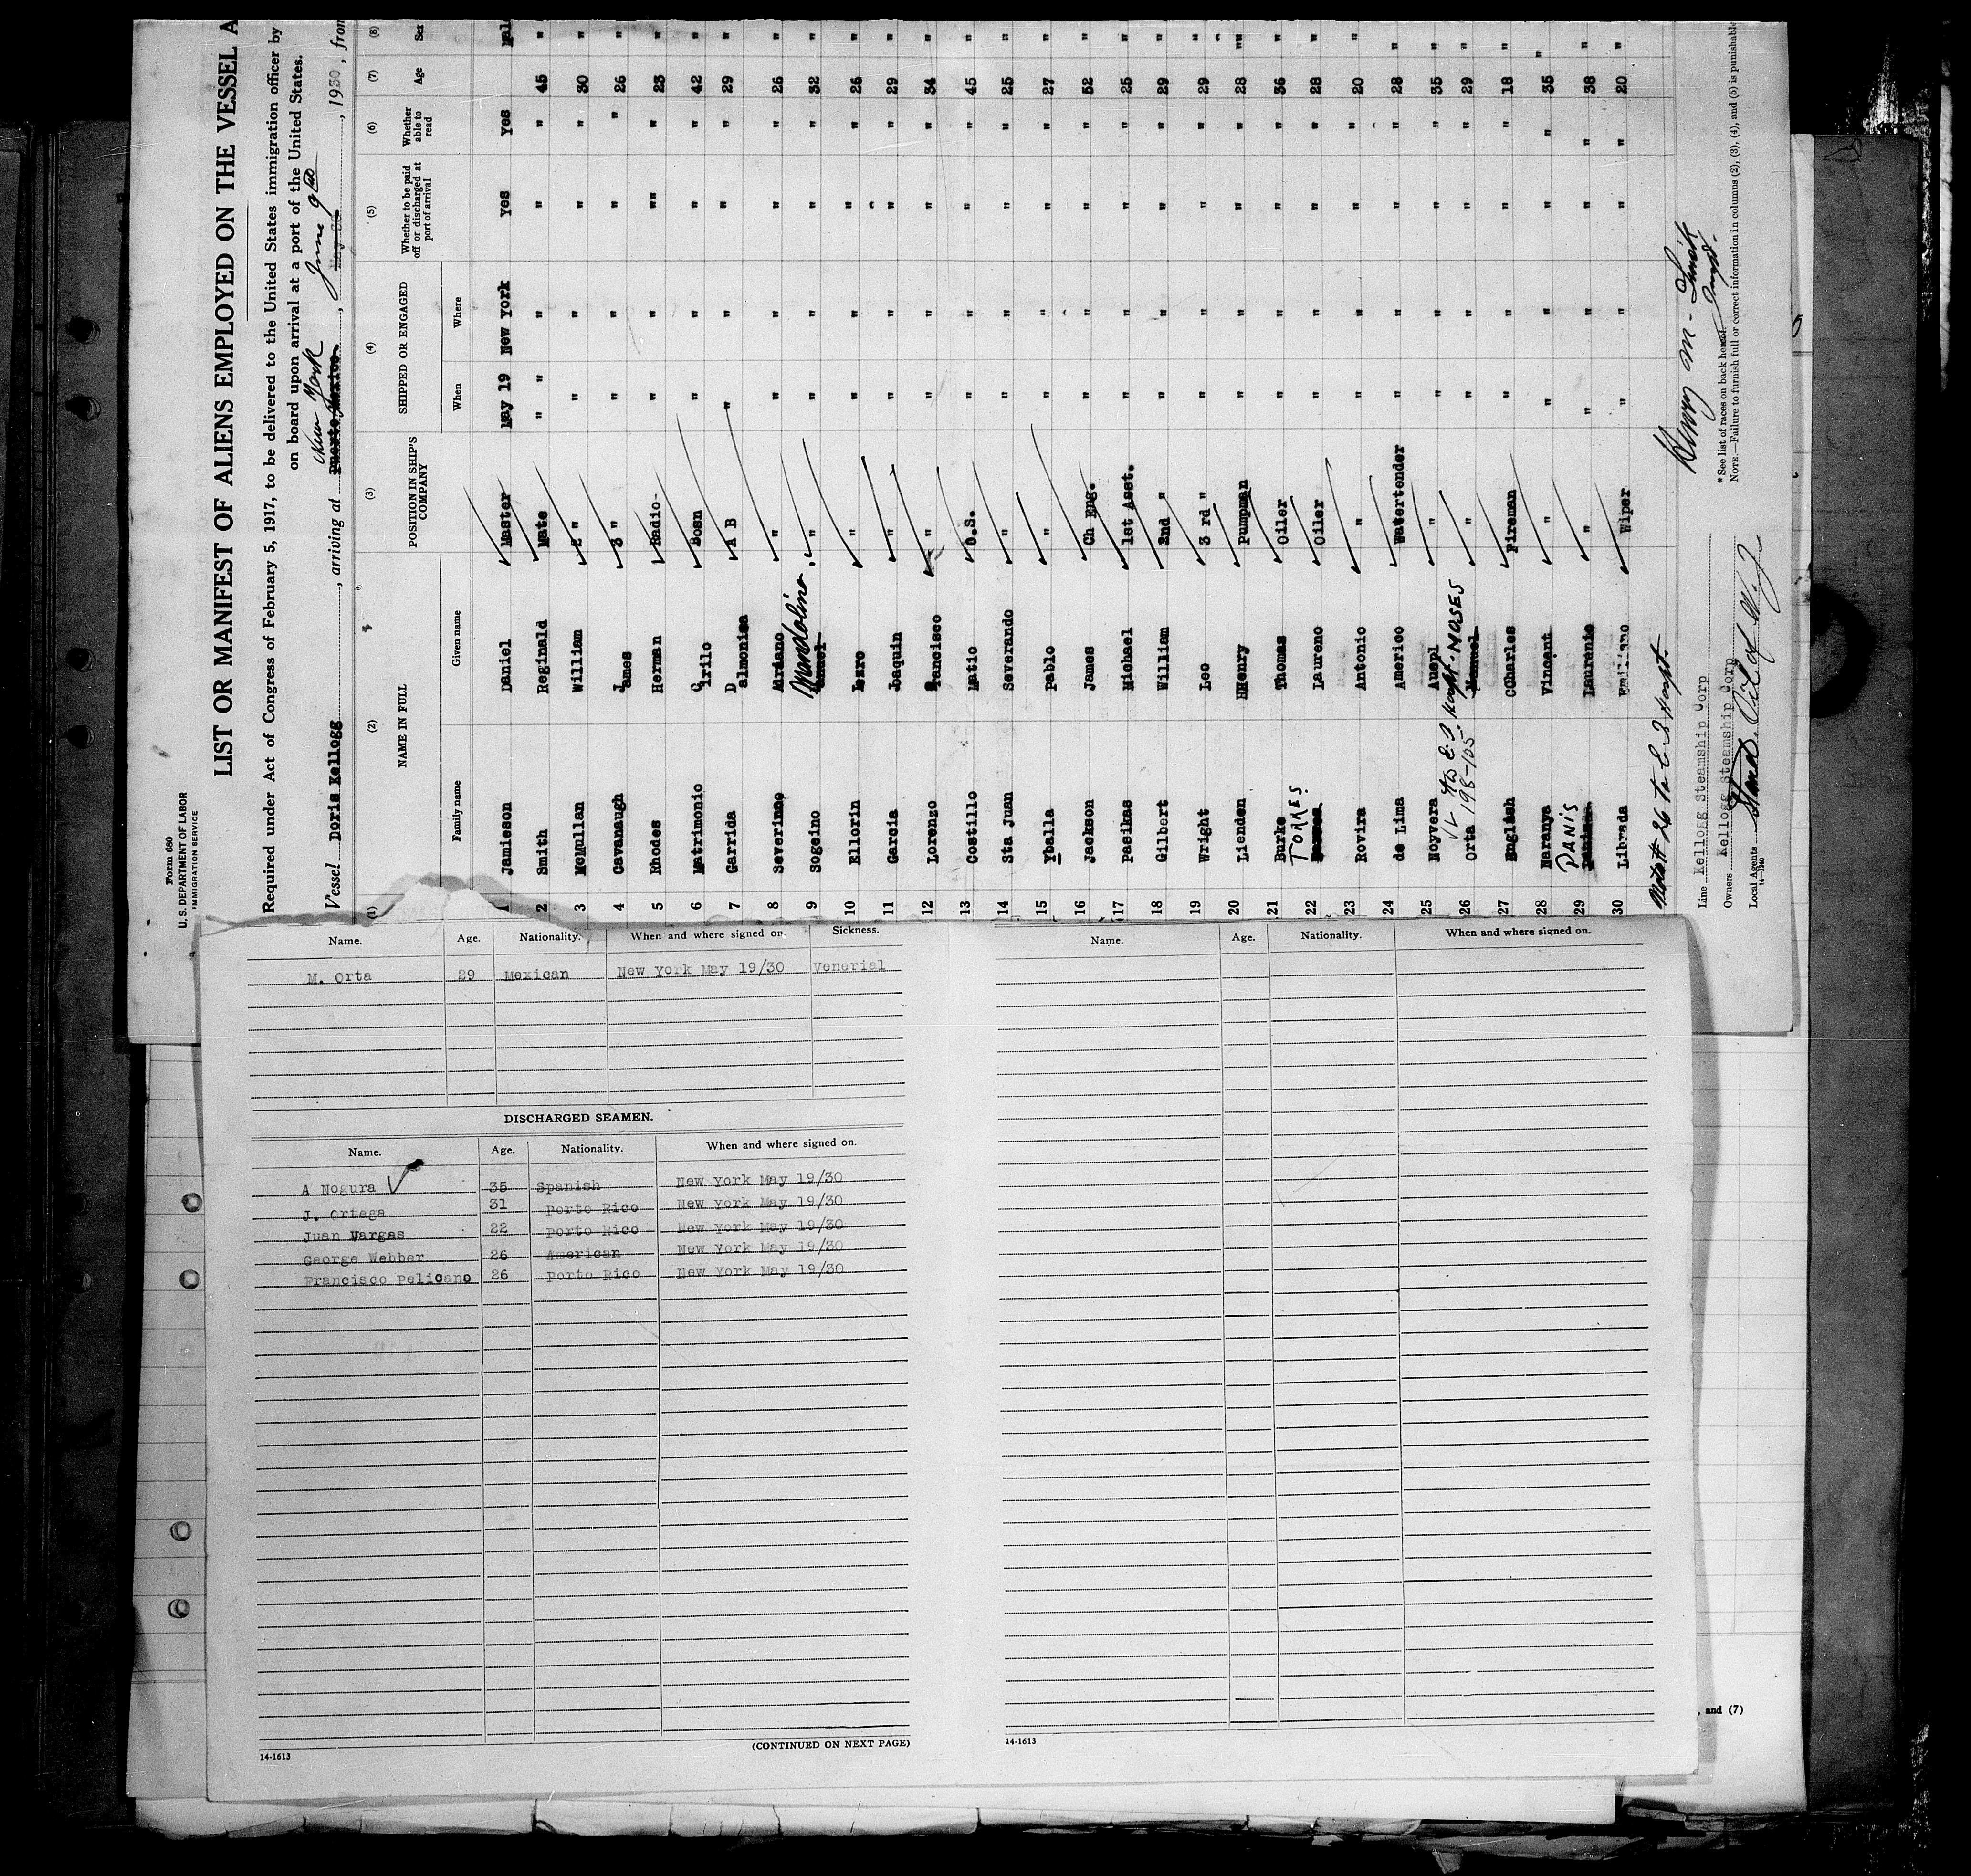 Form 680
U. S. DEPARTMENT OF LABOR
IMMIGRATION SERVICE
LIST OR MANIFEST OF ALIENS EMPLOYED ON THE VESSEL A
Required under Act of Congress of February 5, 1917, to be delivered to the United States immigration officer by
on board upon arrival at a port of the United States.
New York June 9
Vessel Doris Kellogg, arriving at Puerto Mexico, 1930, from
(1) (2) (3) (4) (5) (6) (7) (8)
NAME IN FULL POSITION IN SHIP'S COMPANY SHIPPED OR ENGAGED Whether to be paid off or discharged at port of arrival Whether able to read Age Sex
Family name Given name When Where
1 Jamieson Daniel Master May 19 New York Yes Yes Mal
2 Smith Reginald Mate " " " " " 45 "
3 McMullan William 2 " " " " " 30 "
4 Cavanaugh James 3 " " " " " 26 "
5 Rhodes Herman Radio- " " "" " 23 "
6 Matrimonio Cirilo Bosn " " " " 42 "
7 Garrida Dalmonisa A B " " " " 29 "
8 Severimo Adriano " " " " " 26 "
9 Sogeino " " " " " 32 "
10 Ellorin " " " " " 26 "
11 Garcia Joaquin " " " " " 29 "
12 Lorenzo Francisco " " " " " 34 "
13 Costillo Matio O.S. " " " " 45 "
14 Sta Juan Severando " " " " " 25 "
15 Yballa Pablo " " " " " 27 "
16 Jackson James Ch Eng. " " " " 52 "
17 Pasikas Michael 1st Asst. " " " " 25 "
18 Gilbert William 2nd " " " " " 29 "
19 Wright Leo 3 rd " " " " " 29 "
20 Lienden HHenry Pumpman " " " " 28 ""
21 Burke Thomas Oiler " " " " 36 "
22 TORRES Laureno Oiler " " " " 28 "
23 Rovira Antonio " " " " " 20 "
24 de Lima Americo Watertender " " " " 28 "
25 Noyvera " " " " " 35 "
198-105 MOSES
26 Orta Manuel " " " " " 29 "
27 English CCharles Fireman " " " " 18 "
28 Naranya Vincent " " " " " 35 "
PANIS
29 Laurenio " " " " " 38 "
30 Librada Emiliano Wiper " " " " 20 "
Note # 26 to E. I. Hospt.
Henry M -
Line Kellogg Steamship Corp
Owners Kellogg Steamship Corp
Local Agents Stand. Oil of N. J.
14—1240
*See list of races on back hereof.
NOTE.—Failure to furnish full or correct information in columns (2), (3), (4), and (5) is punishable
Name. Age. Nationality. When and where signed on. Sickness.
M. Orta 29 Mexican New York May 19/30 Venerial
DISCHARGED SEAMEN.
Name. Age. Nationality. When and where signed on.
A Nogura 35 Spanish New York May 19/30
J. Ortega 31 Porto Rico New York May 19/30
Juan Vargas 22 Porto Rico New York May 19/30
George Webber 26 American New York May 19/30
Francisco Pelicano 26 Porto Rico New York May 19/30
14-1613
(CONTINUED ON NEXT PAGE)
Name. Age. Nationality. When and where signed on.
14-1613
, and (7)